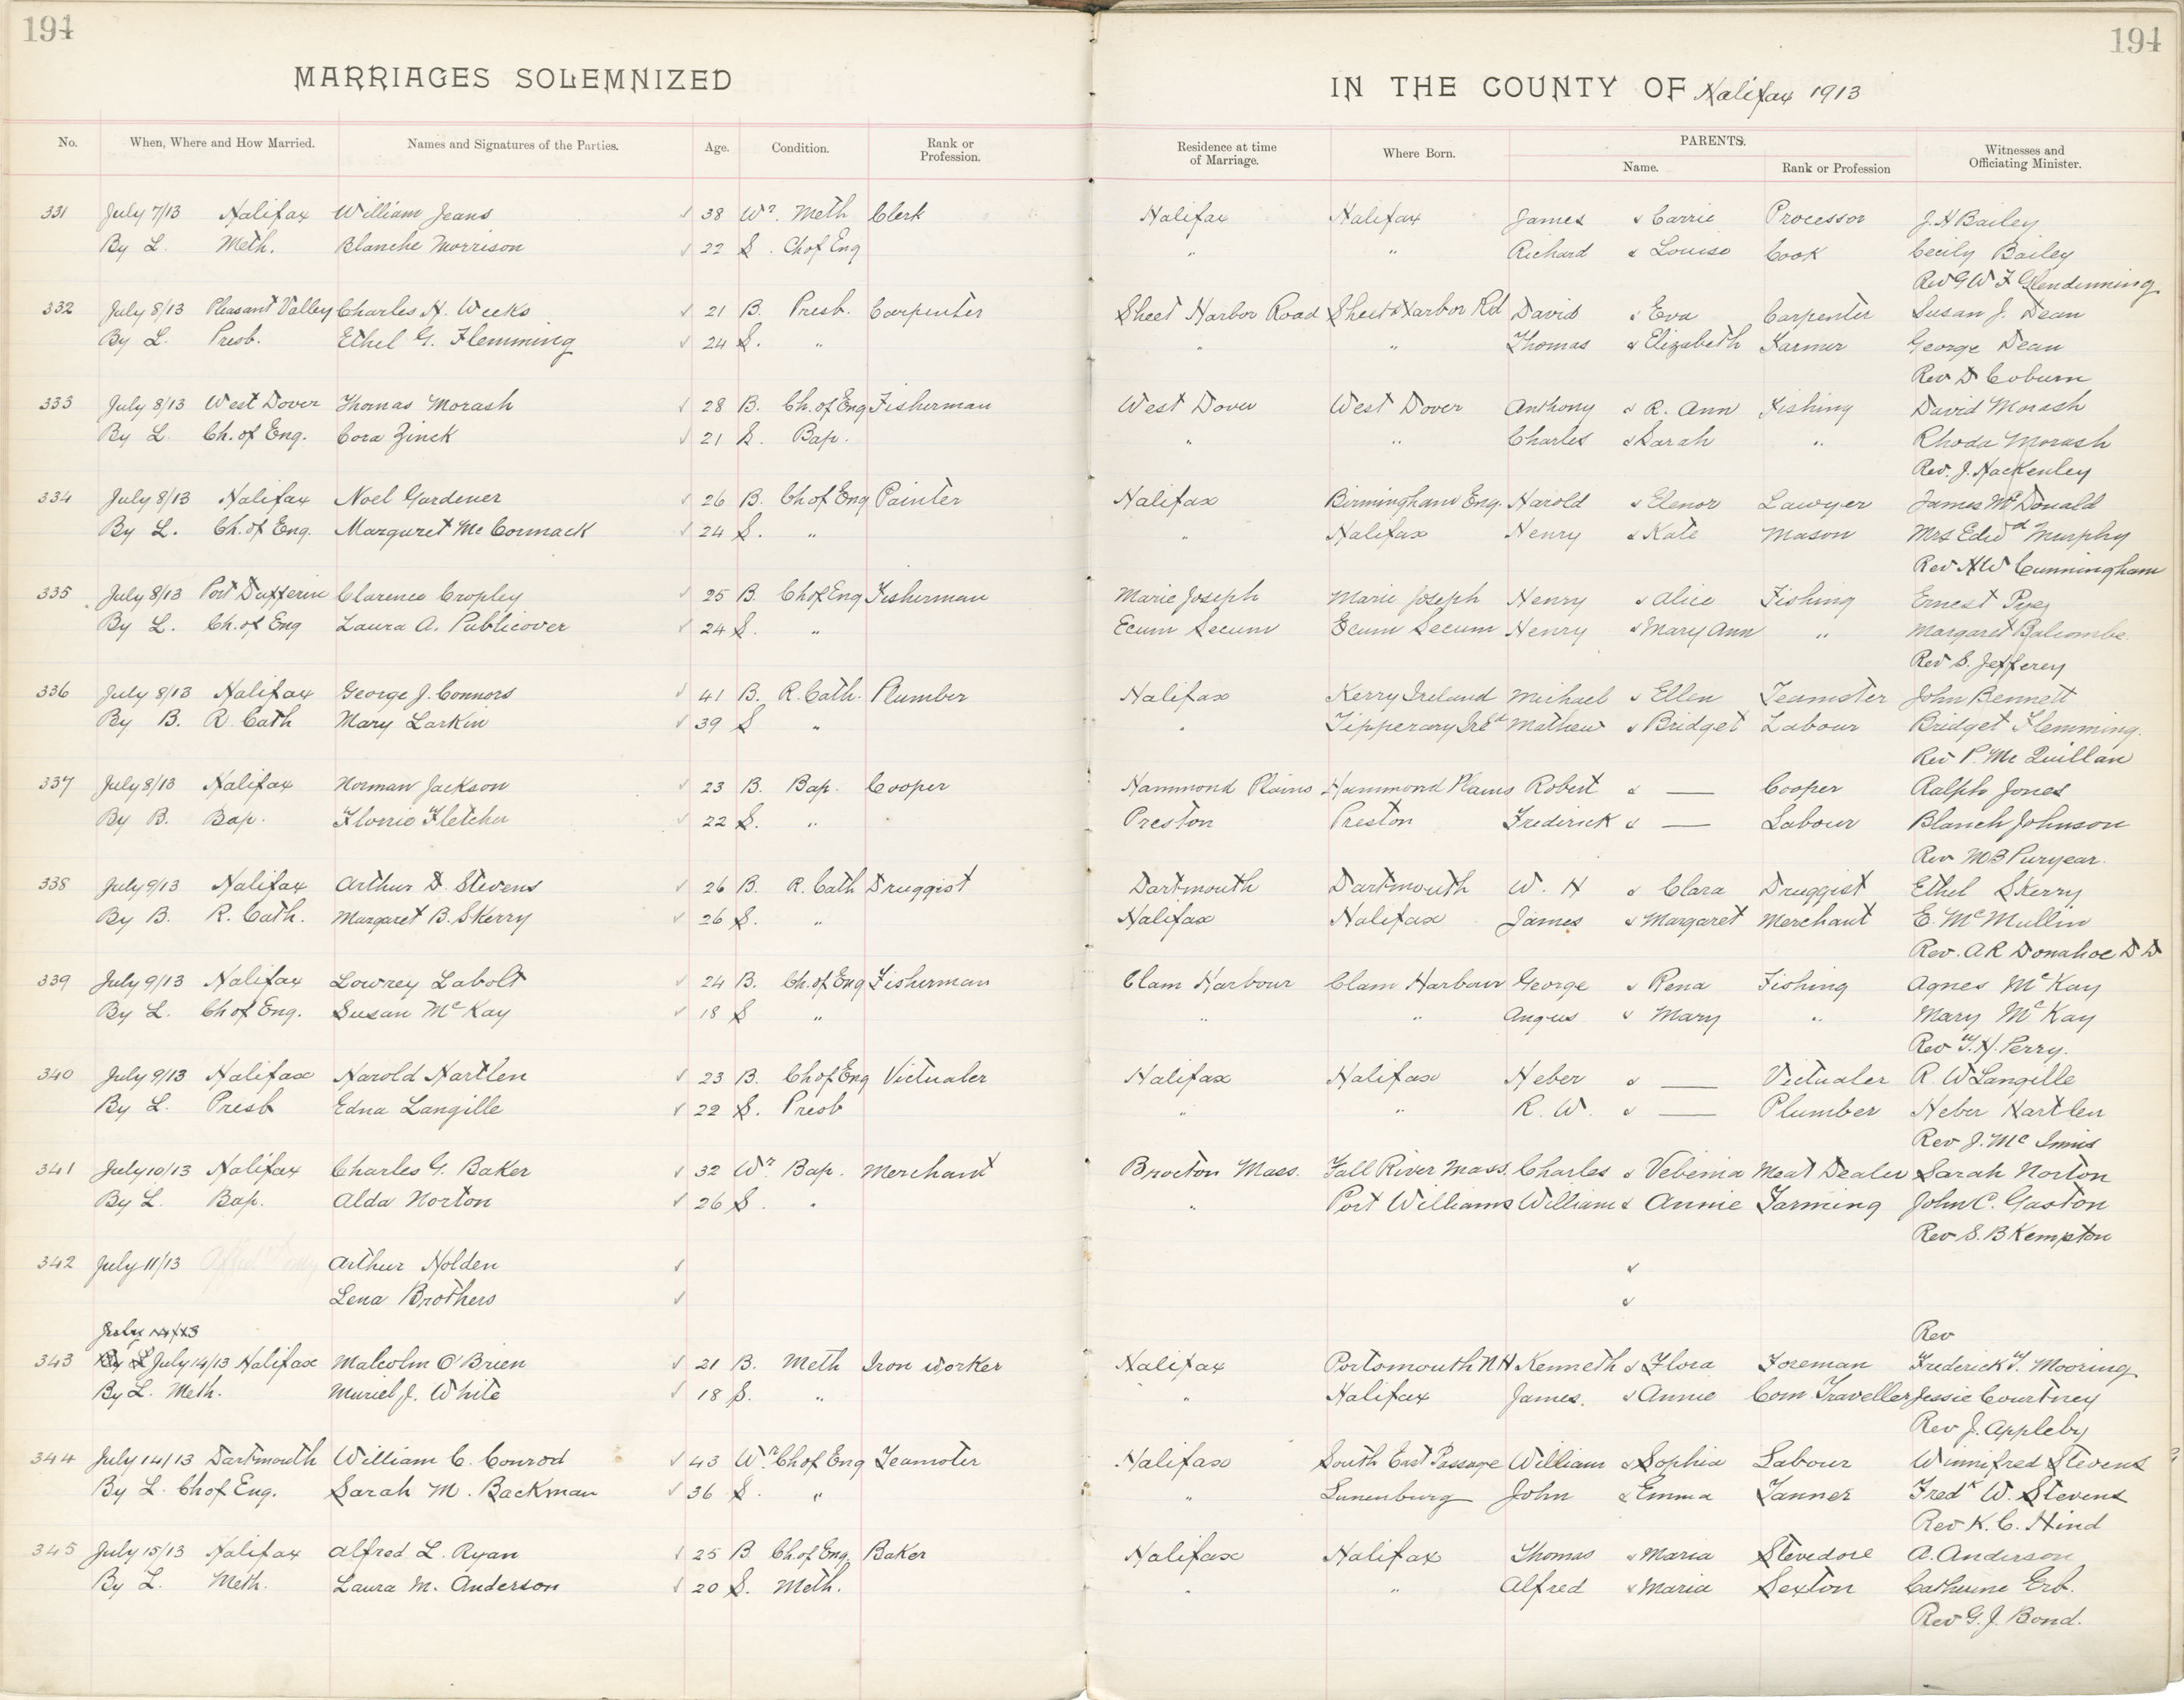 194 194
MARRIAGES SOLEMNIZED IN THE COUNTY OF Halifax 1913
No. When, Where and How Married. Names and Signatures of the Parties. Age. Condition. Rank or Profession. Residence at time of Marriage. Where Born. PARENTS. Name. Rank or Profession Witnesses and Officiating Minister.
331 July 7/13 Halifax William Jeans √ 38 Wr. Meth Clerk Halifax Halifax James & Carrie Processor J. H Bailey
By L. Meth. Blanche Morrison √ 22 S. Ch of Eng " " Richard & Louise Cook Cecily Bailey
Rev G W F Glendinning
332 July 8/13 Pleasant Valley Charles H. Weeks √ 21 B. Presb. Carpenter Sheet Harbor Road Sheet Harbor Rd David & Eva Carpenter Susan J. Dean
By L. Presb. Ethel G. Flemming √ 24 S. " " " Thomas & Elizabeth Farmer George Dean
Rev D Coburn
333 July 8/13 West Dover Thomas Morash √ 28 B. Ch. of Eng Fisherman West Dover West Dover Anthony & R. Ann Fishing David Morash
By L. Ch. of Eng. Cora Zinck √ 21 S. Bap. " " Charles & Sarah " Rhoda Morash
Rev. J. Hackenley
334 July 8/13 Halifax Noel Gardener √ 26 B. Ch of Eng Painter Halifax Birmingham Eng. Harold & Elenor Lawyer James McDonald
By L. Ch. of Eng. Margaret McCormack √ 24 S. " " Halifax Henry & Kate Mason Mrs Edwd Murphy
Rev H W Cunningham
335 July 8/13 Port Dufferin Clarence Cropley √ 25 B. Ch of Eng Fisherman Marie Joseph Marie Joseph Henry & Alice Fishing Ernest Pye
By L. Ch. of Eng Laura A. Publicover √ 24 S. " Ecum Secum Ecum Secum Henry & Mary Ann " Margaret Balcombe.
Rev S. Jefferey
336 July 8/13 Halifax George J. Connors √ 41 B. R. Cath. Plumber Halifax Kerry Ireland Michael & Ellen Teamster John Bennett
By B. R Cath Mary Larkin √ 39 S " " Tipperary Ireld Mathew & Bridget Labour Bridget Flemming.
Rev P. McQuillan
337 July 8/13 Halifax Norman Jackson √ 23 B. Bap. Cooper Hammond Plains Hammond Plains Robert & — Cooper Ralph Jones
By B. Bap. Florrie Fletcher √ 22 S. " Preston Preston Frederick & — Labour Blanch Johnson
Rev M B Puryear.
338 July 9/13 Halifax Arthur D. Stevens √ 26 B. R. Cath Druggist Dartmouth Dartmouth W. H & Clara Druggist Ethel Skerry
By B. R. Cath. Margaret B. Skerry √ 26 S. " Halifax Halifax James & Margaret Merchant E. McMullin
Rev. A R Donahoe D D
339 July 9/13 Halifax Lowrey Labolt √ 24 B. Ch. of Eng Fisherman Clam Harbour Clam Harbour George & Rena Fishing Agnes McKay
By L. Ch of Eng. Susan McKay √ 18 S " " " Angus & Mary " Mary McKay
Rev T. H. Perry.
340 July 9/13 Halifax Harold Hartlen √ 23 B. Ch of Eng Victualer Halifax Halifax Heber & — Victualer R. W Langille
By L. Presb Edna Langille √ 22 S. Presb " " R. W. & — Plumber Heber Hartlen
Rev J. McInnis
341 July 10/13 Halifax Charles G. Baker √ 32 Wr. Bap. Merchant Brocton Mass. Fall River Mass. Charles & Vebenia Meat Dealer Sarah Norton
By L. Bap. Alda Norton √ 26 S. " " Port Williams William & Annie Farming John C. Gaston
Rev S. B Kempton
342 July 11/13 Arthur Holden √ &
Lena Brothers √ &
July 14/13 Rev
343 By L July 14/13 Halifax Malcolm O'Brien √ 21 B. Meth Iron worker Halifax Portsmouth N H Kenneth & Flora Foreman Frederick T. Mooring
By L. Meth. Muriel J. White √ 18 S. " " Halifax James. & Annie Com Traveller Jessie Courtney
Rev J. Appleby
344 July 14/13 Dartmouth William C. Conrod √ 43 Wr. Ch of Eng Teamster Halifax South East Passage William & Sophia Labour Winnifred Stevens
By L. Ch of Eng. Sarah M. Backman √ 36 S. " " Lunenburg John & Emma Tanner Fredk W. Stevens
Rev K. C. Hind
345 July 15/13 Halifax Alfred L. Ryan √ 25 B Ch. of Eng. Baker Halifax Halifax Thomas & Maria Stevedore A. Anderson
By L. Meth. Laura M. Anderson √ 20 S. Meth. " " Alfred & Maria Sexton Catherine Erb.
Rev G. J. Bond.